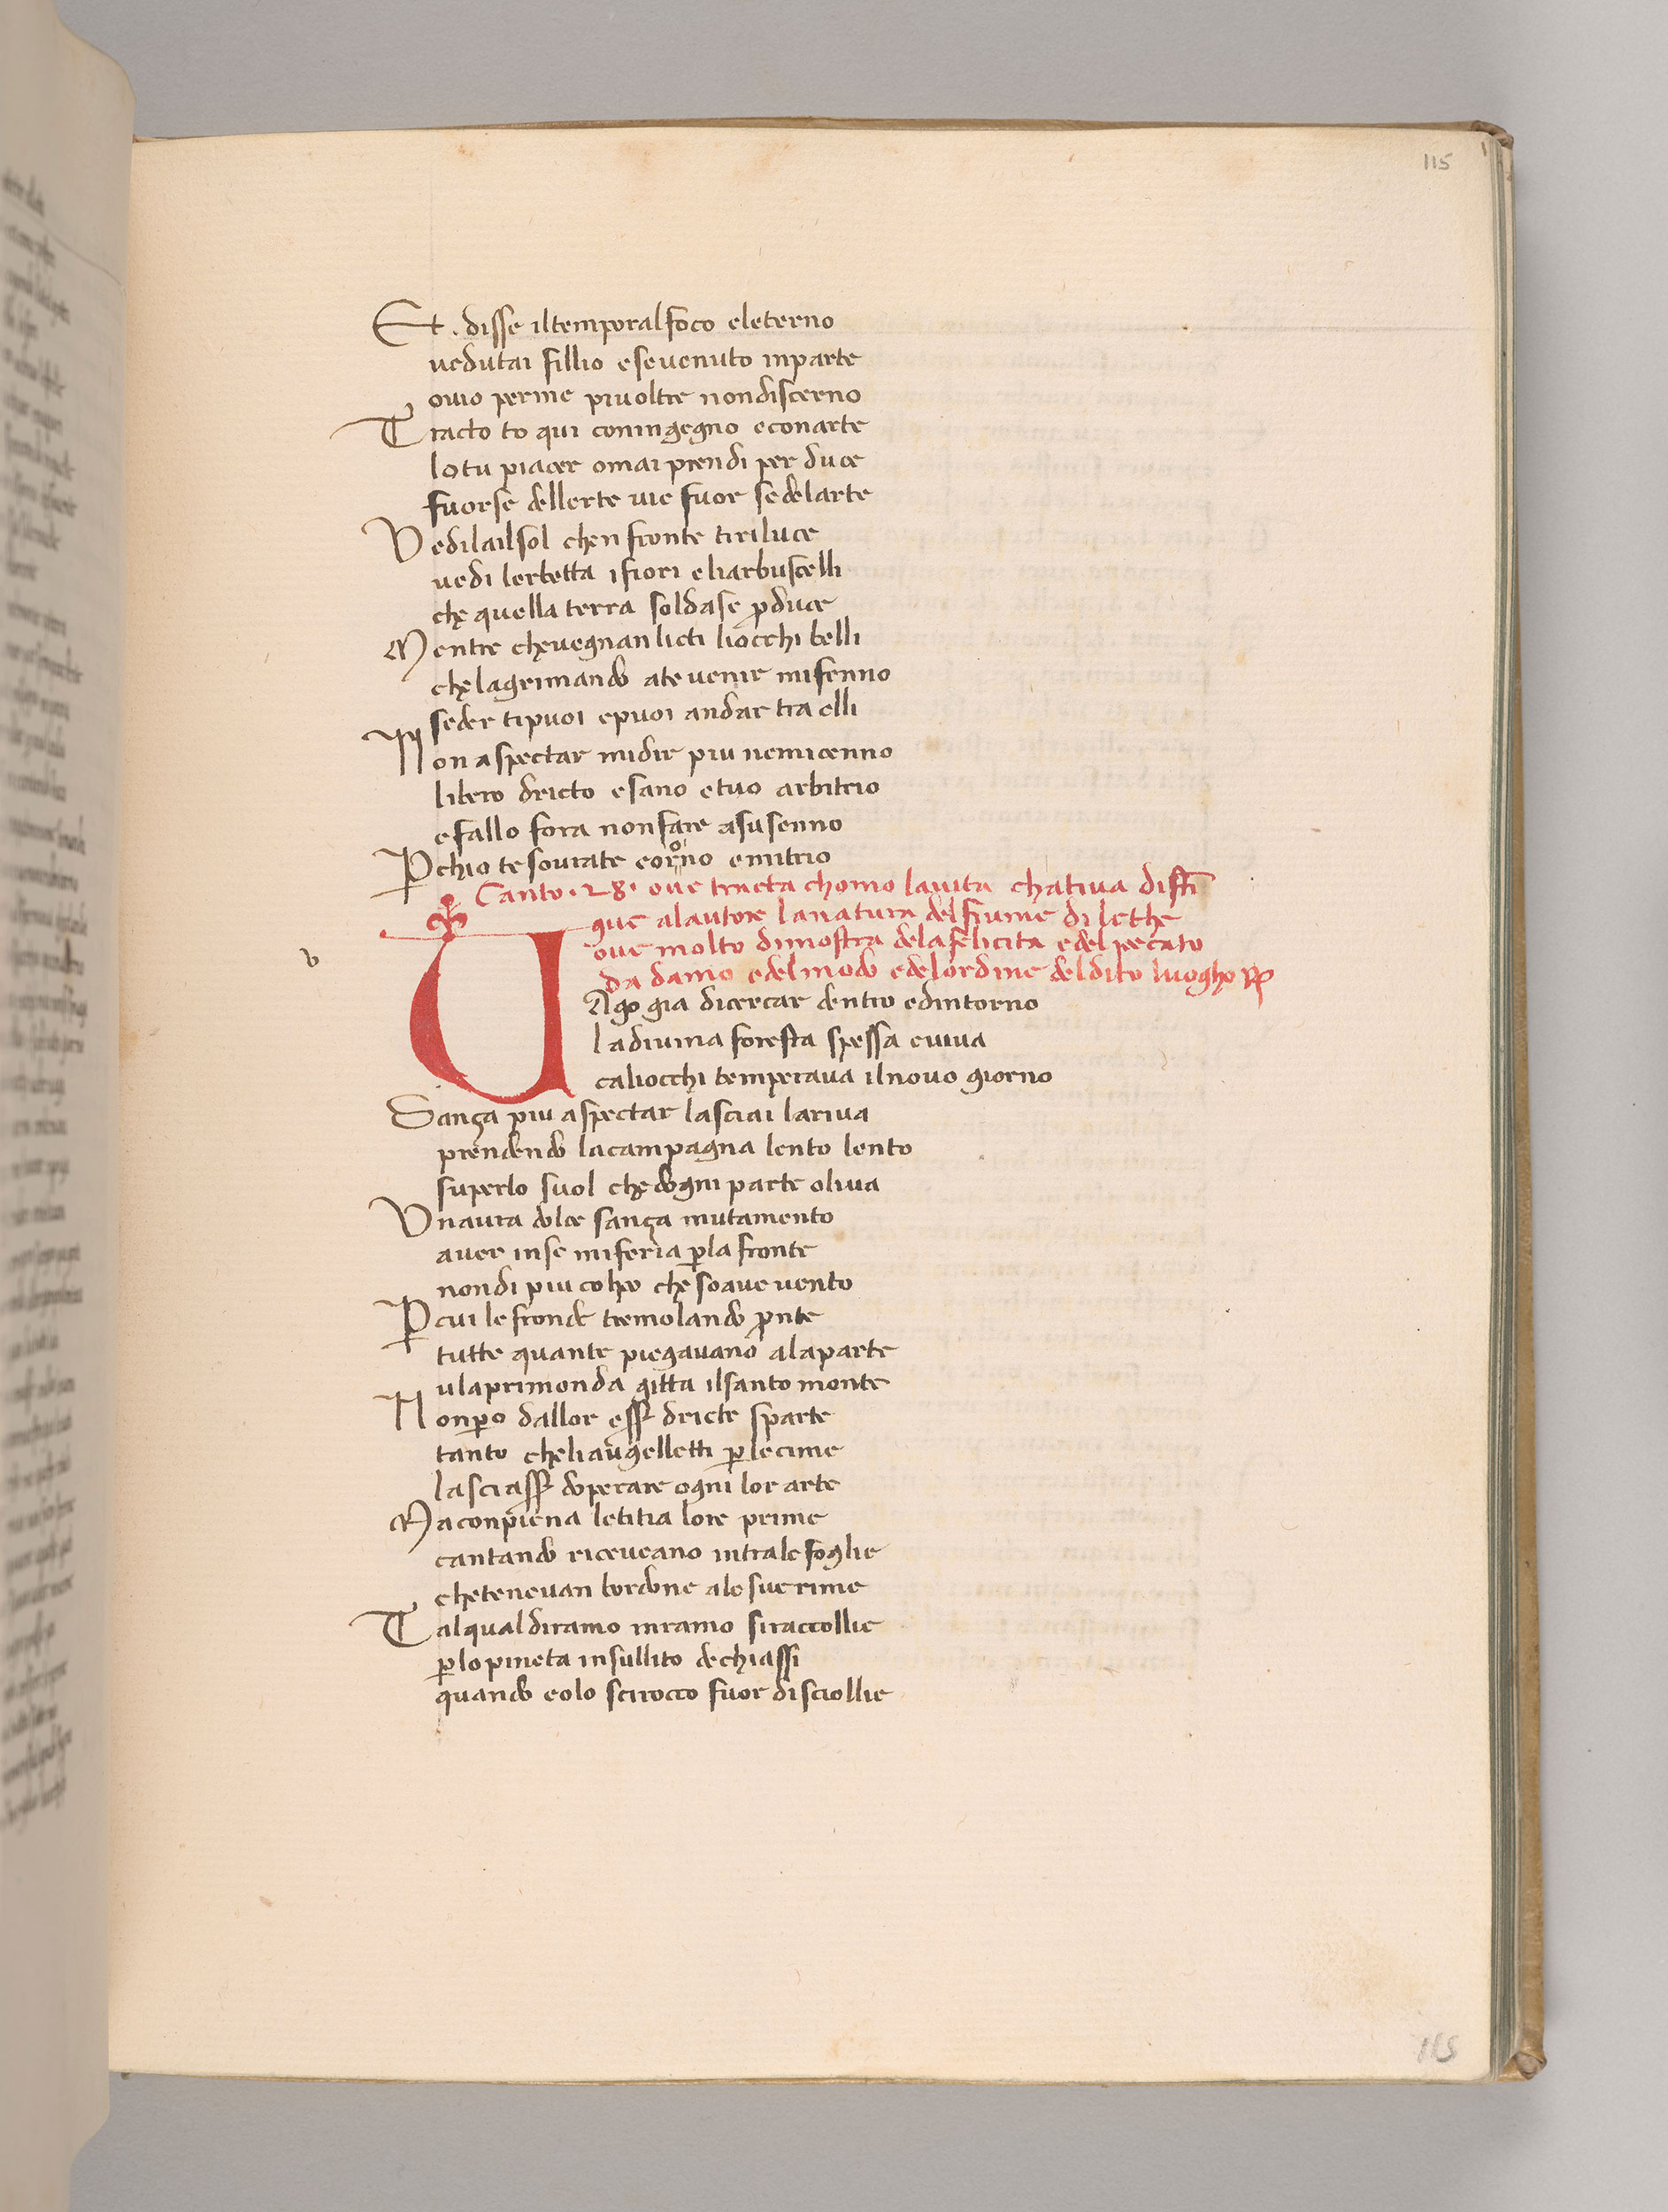 115
Et. disse iltemporalfoco eleterno
vedutai fillio esevenuto inparte
ovio perme piuoltre nondiscerno
Tracto to qui coningegno econarte
lotu piacer omai prendi per duce
fuorse dellerte vie fuor sedelarte
Vedilailsol chenfronte tiriluce
vedi lerbetta ifiori eliarbuscelli
che quella terra soldase pduce
Mentre chevegnan lieti liocchi belli
chelagrimando atevenir mifenno
seder tipuoi epuoi andar tra elli
Non aspectar midir piu nemicenno
libero dricto esano etuo arbitrio
efallo fora nonfare asusenno
Pchio tesovrate corono emitrio
Canto .28. ove tracta chomo lavita chativa disti
gue alautore lanatura delfiume di lethe
ove molto dimostra delafelicita edel peccato
da damo edelmodo edelordine deldito luogho
v
VAgo gia dicercar dentro edintorno
ladivina foresta spessa eviva
caliocchi temperava ilnovo giorno
Sança piu aspectar lasciai lariva
prendendo lacampagna lento lento
superlo suol chedogni parte oliva
Unaura dolce sança mutamento
aver inse miferia pla fronte
nondi piu colpo che soave vento
Pcui le fronde tremolando pnte
tutte quante piegavano alaparte
ulaprimonda gitta ilsanto monte
Nonpo dallor ess dricte sparte
tanto cheliaugelletti p lecime
lasciass doperare ogni lor arte
Maconpiena letitia lore prime
cantando riceveano intralefoglie
chetenevan bordone ale sue rime
Talqualdiramo inramo siraccollie
plopineta insullito dechiassi
quando eolo scirocco fuor disciollie
115